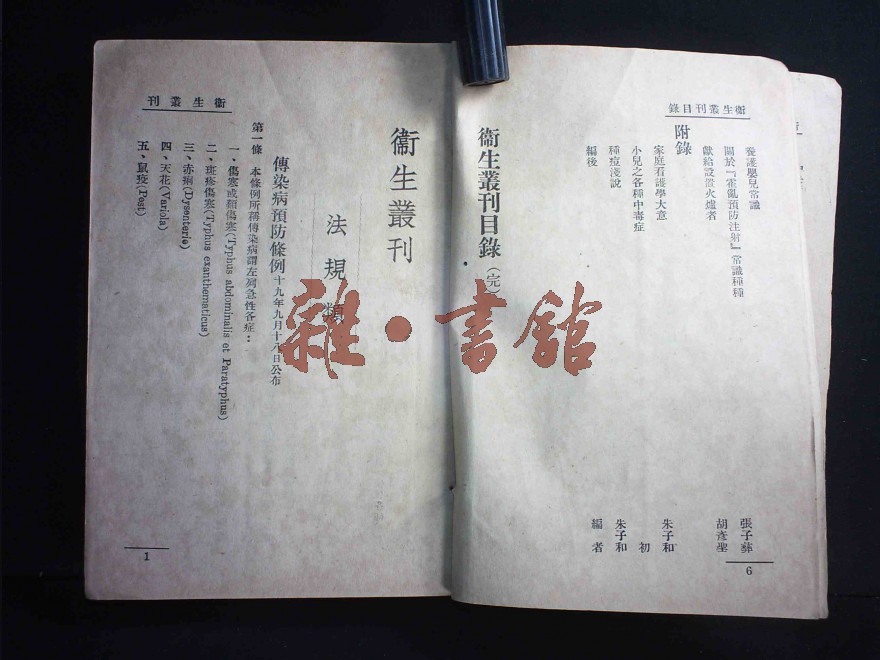 衞生叢刊目錄
養護嬰兒常識
張子彝
關於『霍亂預防注射』常識種種
胡彥聖
附錄
獻給設置火爐者
家庭看護學大意
朱子和
小兒之各種中毒症
初
種痘淺說
朱子和
編後
編者
衞生叢刊目錄(完)
6
衞生叢刊
衞生叢刊
法規類
傳染病預防條例 十九年九月十八日公布
第一條 本條例所稱傳染病謂左列急性各症：
一、傷寒或類傷寒(Typhus abdominalis et Paratyphus)
二、斑疹傷寒(Typhus exanthematicus)
三、赤痢(Dysenterie)
四、天花(Variola)
五、鼠疫(Pest)
1
雜·書館